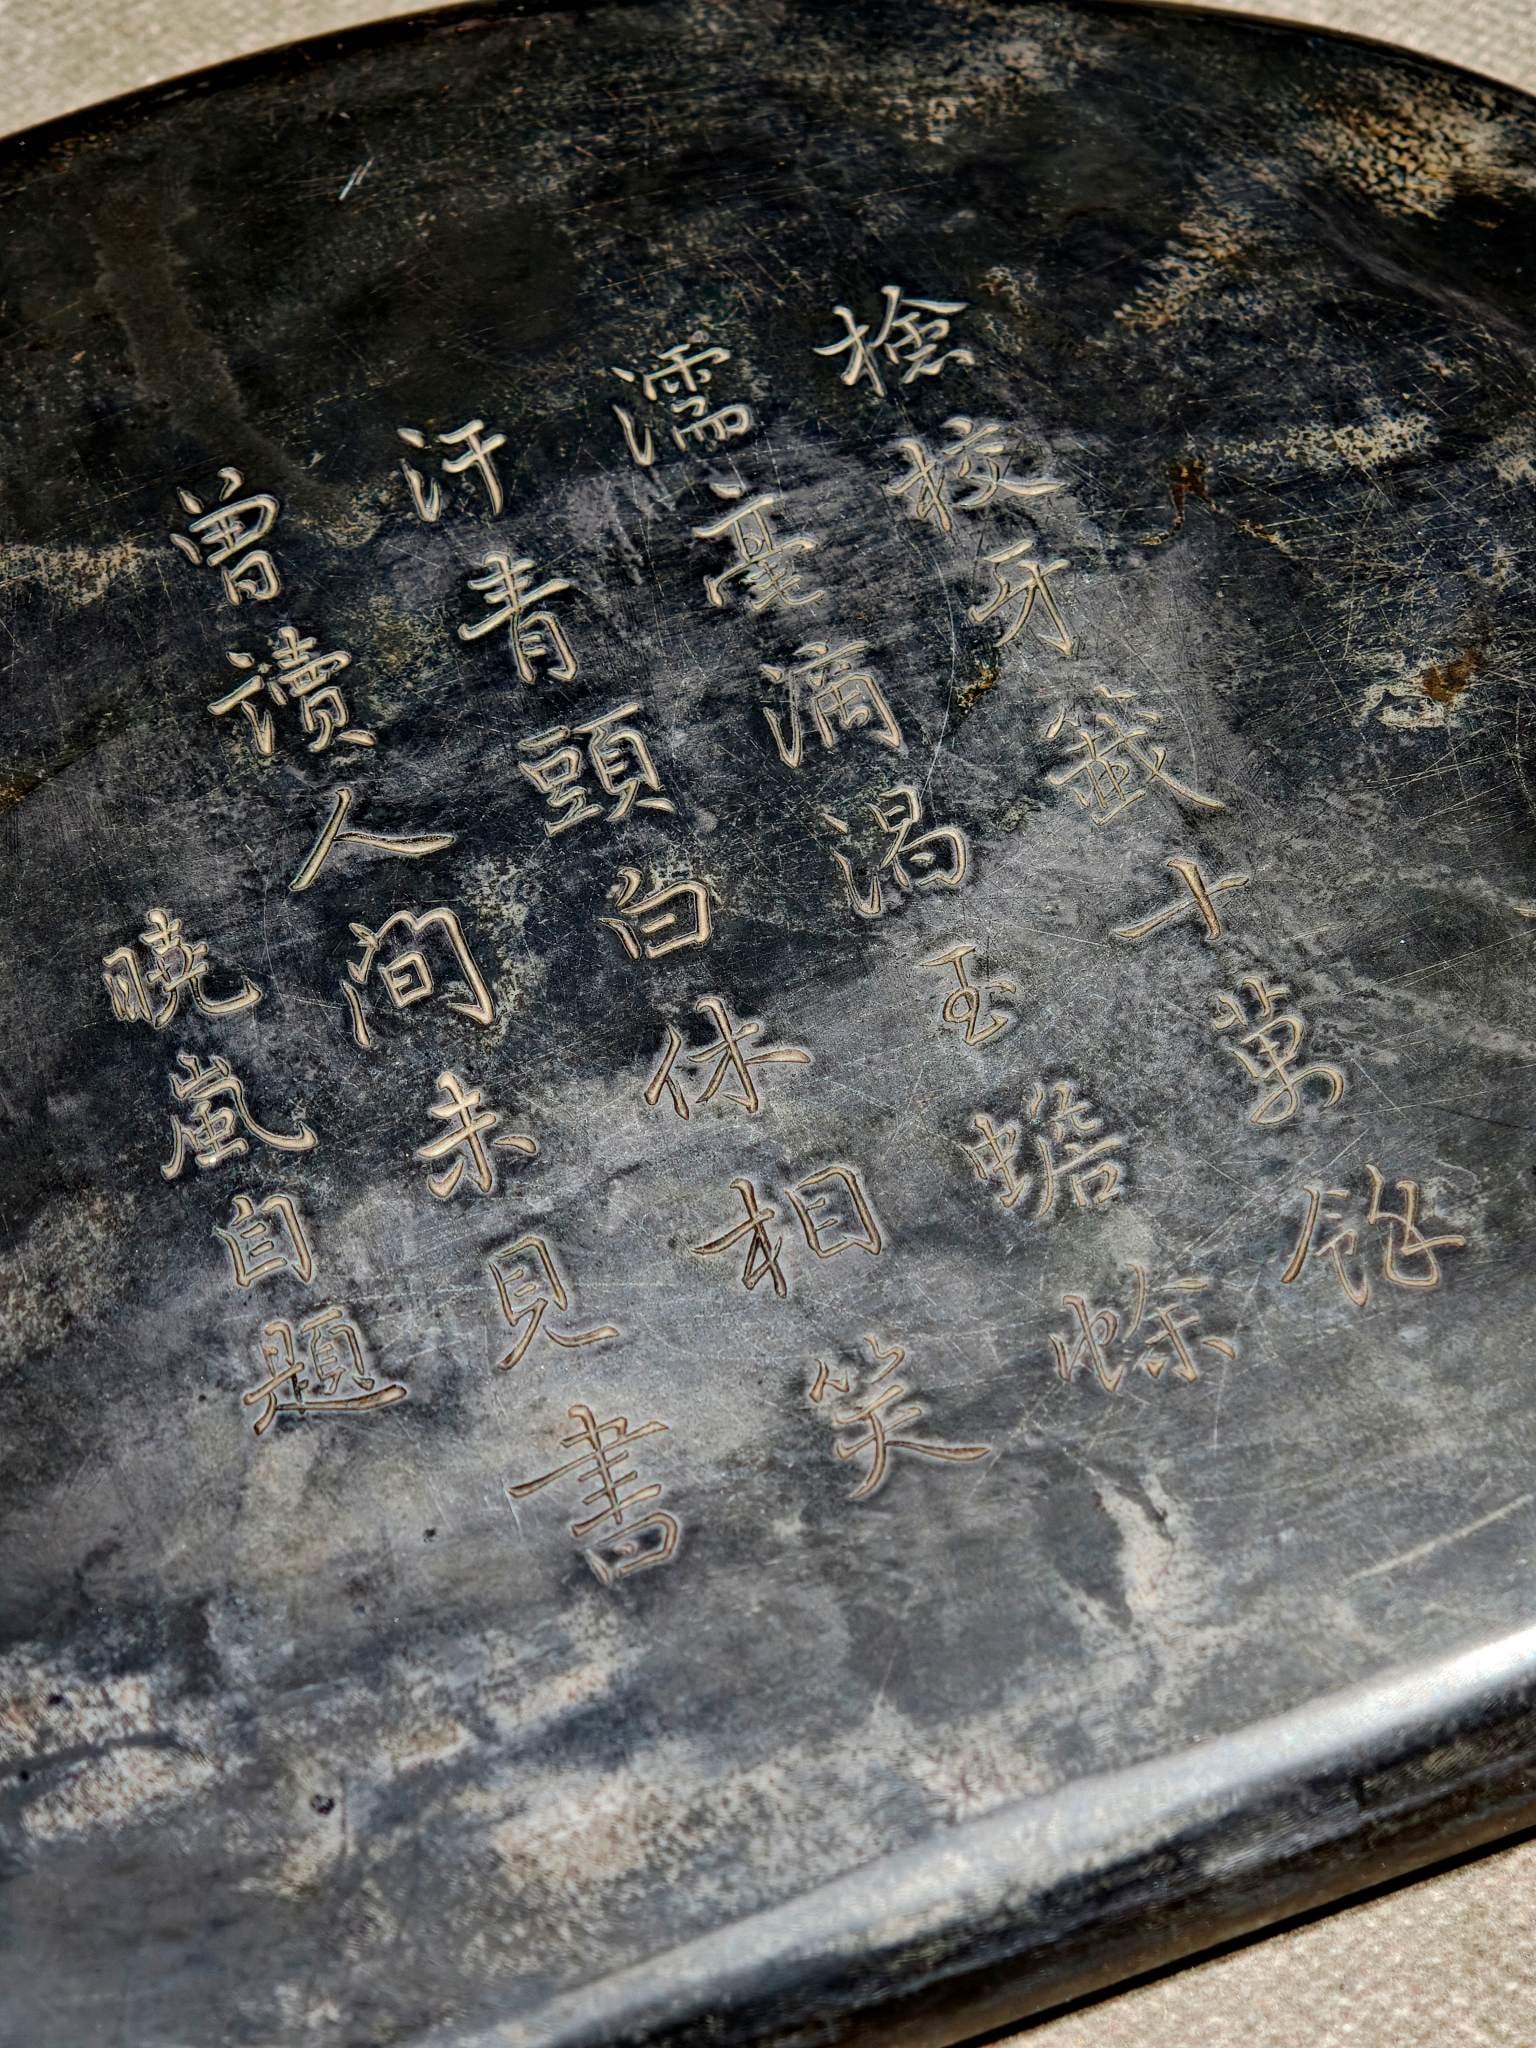 檢校牙籤十萬餘
濡毫滴渴玉蟾蜍
汗青頭白休相笑
曾讀人間未見書
曉嵐自題